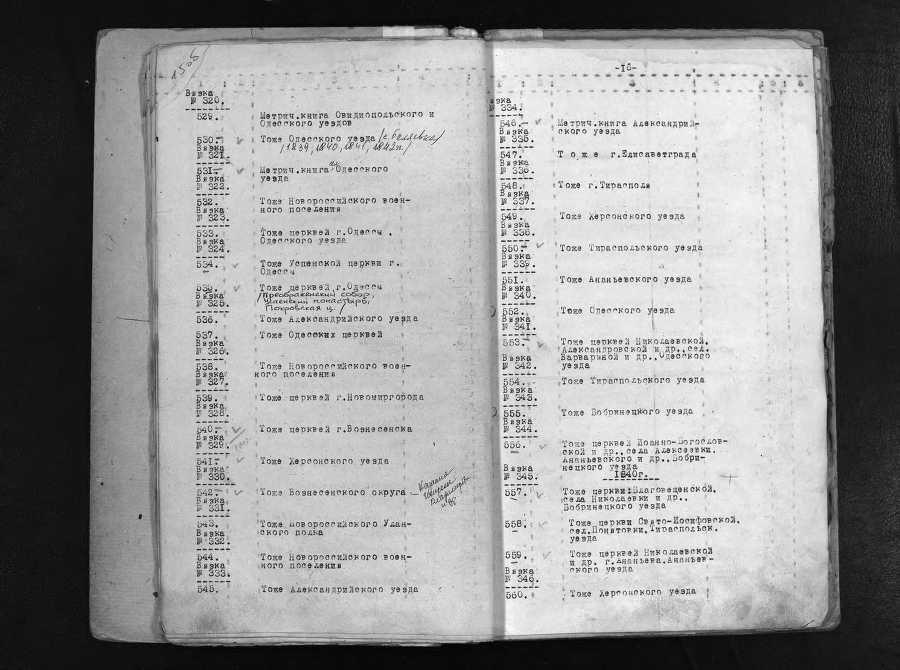 Вязка
№ 320.
529. Метрич.книга Овидиопольского и
Одесского уездов
530. Тоже Одесского уезда /с. Беляевка/
Вязка /1839, 1840, 1841, 1842гг./
№ 321.
531. Метрич.книга Одесского
Вязка уезда
№ 322.
532. Тоже Новороссийского воен-
Вязка ного поселения
№ 323.
533. Тоже церквей г.Одессы,
Вязка Одесского уезда
№ 324.
534. Тоже Успенской церкви г.
Одессы
535. Тоже церквей г.Одессы
Вязка /Преображенский собор,
№ 325. Успенский монастырь,
Покровская ц./
536. Тоже Александрийского уезда
537. Тоже Одесских церквей
Вязка
№ 326.
538. Тоже Новороссийского воен-
Вязка ного поселения
№ 327.
539. Тоже церквей г.Новомиргорода
Вязка
№ 328.
540. Тоже церквей г.Вознесенска
Вязка
№ 329.
541. Тоже Херсонского уезда
Вязка
№ 330.
542. Тоже Вознесенского округа
Вязка
№ 331.
543. Тоже Новороссийского Улан-
Вязка ского полка
№ 332.
544. Тоже Новороссийского воен-
Вязка ного поселения
№ 333.
545. Тоже Александрийского уезда
-16-
Вязка
№ 334.
546. Метрич.книга Александрий-
Вязка ского уезда
№ 335.
547. Т о ж е г.Елисаветграда
Вязка
№ 336.
548. Тоже г.Тирасполя
Вязка
№ 337.
549. Тоже Херсонского уезда
Вязка
№ 338.
550. Тоже Тираспольского уезда
Вязка
№ 339.
551. Тоже Ананьевского уезда
Вязка
№ 340.
552. Тоже Одесского уезда
Вязка
№ 341.
553. Тоже церквей Николаевской,
Александровской и др.,сел.
Вязка Варвариной и др.,Одесского
№ 342. уезда
554. Тоже Тираспольского уезда
Вязка
№ 343.
555. Тоже Бобринецкого уезда
Вязка
№ 344.
556. Тоже церквей Иоанно-Богослов-
ской и др.,села Алексеевки,
Ананьевского и др.,Бобри-
Вязка нецкого уезда
№ 345. 1840г.
557. Тоже церкви:Благовещенской,
села Николаевки и др.,
Бобринецкого уезда
558. Тоже церкви Свято-Иосифовской,
сел.Понятовки,Тираспольск.
уезда
559. Тоже церквей Николаевской
и др. г.Ананьева,Ананьев-
Вязка ского уезда
№ 346.
560. Тоже Херсонского уезда